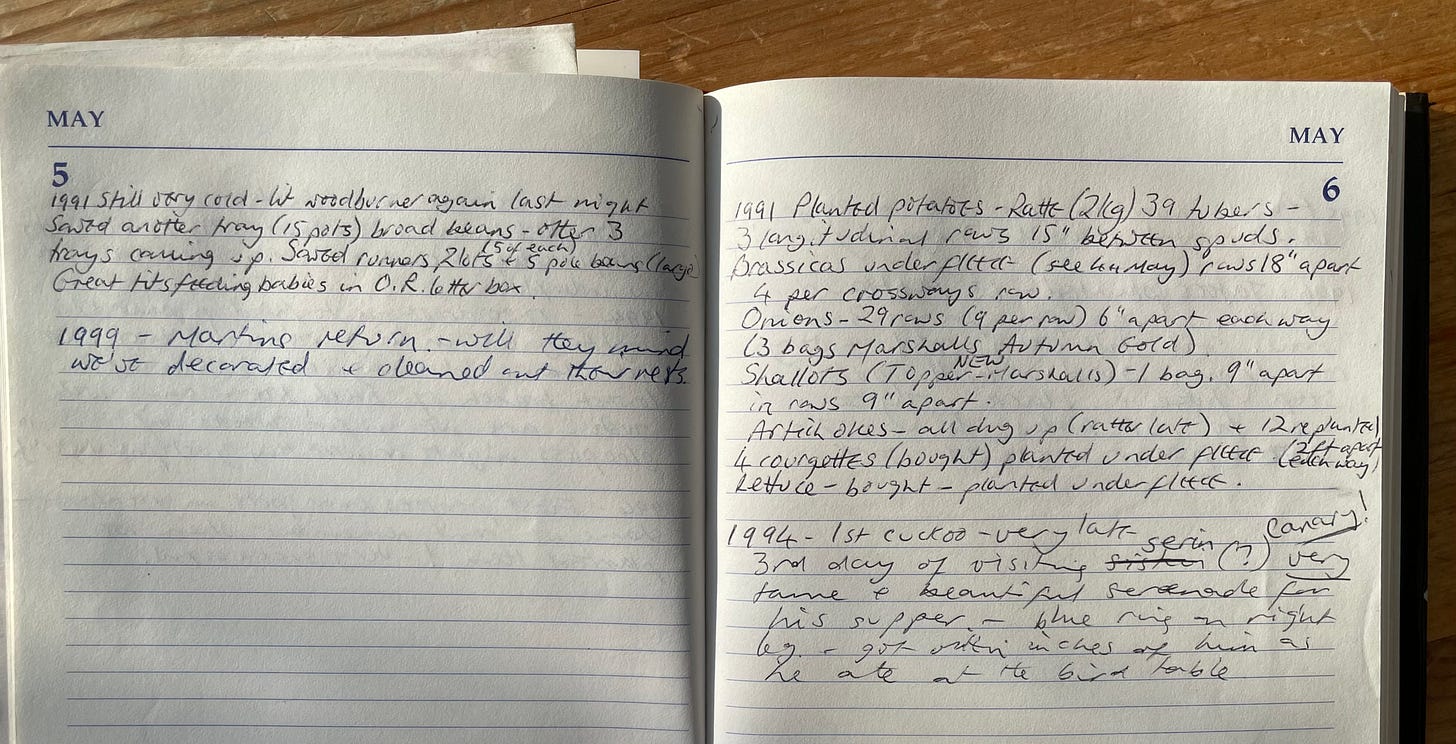 MAY
5
1991 Still very cold - lit woodburner again last night
Sowed another tray (15 pots) broad beans - other 3
trays coming up. Sowed runners, 2 lots + 5 pole beans (large)
(5 of each)
Great tits feeding babies in O.R. letter box.
1999 - Martins return - will they mind
we've decorated + cleaned out their nests.
MAY
6
1991 Planted potatoes - Ratte (2kg) 39 tubers -
3 longitudinal rows 15" between spuds.
Brassicas under fleece (see 4th May) rows 18" apart
4 per crossways row.
Onions - 29 rows (9 per row) 6" apart each way
(3 bags Marshalls Autumn Gold)
NEW
Shallots (Topper - Marshalls) - 1 bag. 9" apart
in rows 9" apart.
Artichokes - all dug up (rather late) + 12 replanted
(2ft apart
each way)
4 courgettes (bought) planted under fleece.
Lettuce - bought - planted under fleece.
1994 - 1st cuckoo - very late
Canary!
serin
3rd day of visiting (?) very
tame & beautiful serenade for
his supper. - blue ring on right
leg. - got within inches of him as
he ate at the bird table